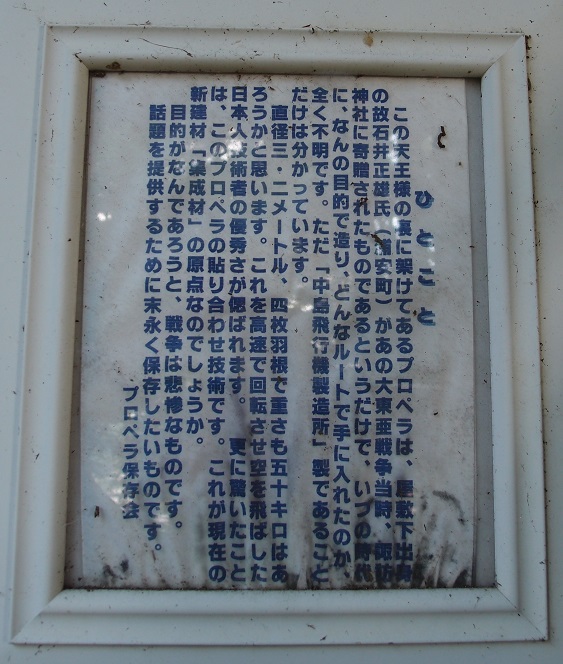 ひとこと
この天王様の裏に架けてあるプロペラは、屋敷下出身
の故石井正雄氏(浦安町)があの大東亜戦争当時、諏訪
神社に寄贈されたものであるというだけで、いつの時代
に、なんの目的で造り、どんなルートで手に入れたのか、
全く不明です。ただ「中島飛行機製造所」製であること
だけは分かっています。
直径三・二メートル、四枚羽根で重さも五十キロはあ
ろうかと思います。これを高速で回転させ空を飛ばした
日本人技術者の優秀さが偲ばれます。 更に驚いたこと
は、このプロペラの貼り合わせ技術です。これが現在の
新建材「集成材」の原点なのでしょうか。
目的がなんであろうと、戦争は悲惨なものです。
話題を提供するために末永く保存したいものです。
プロペラ保存会